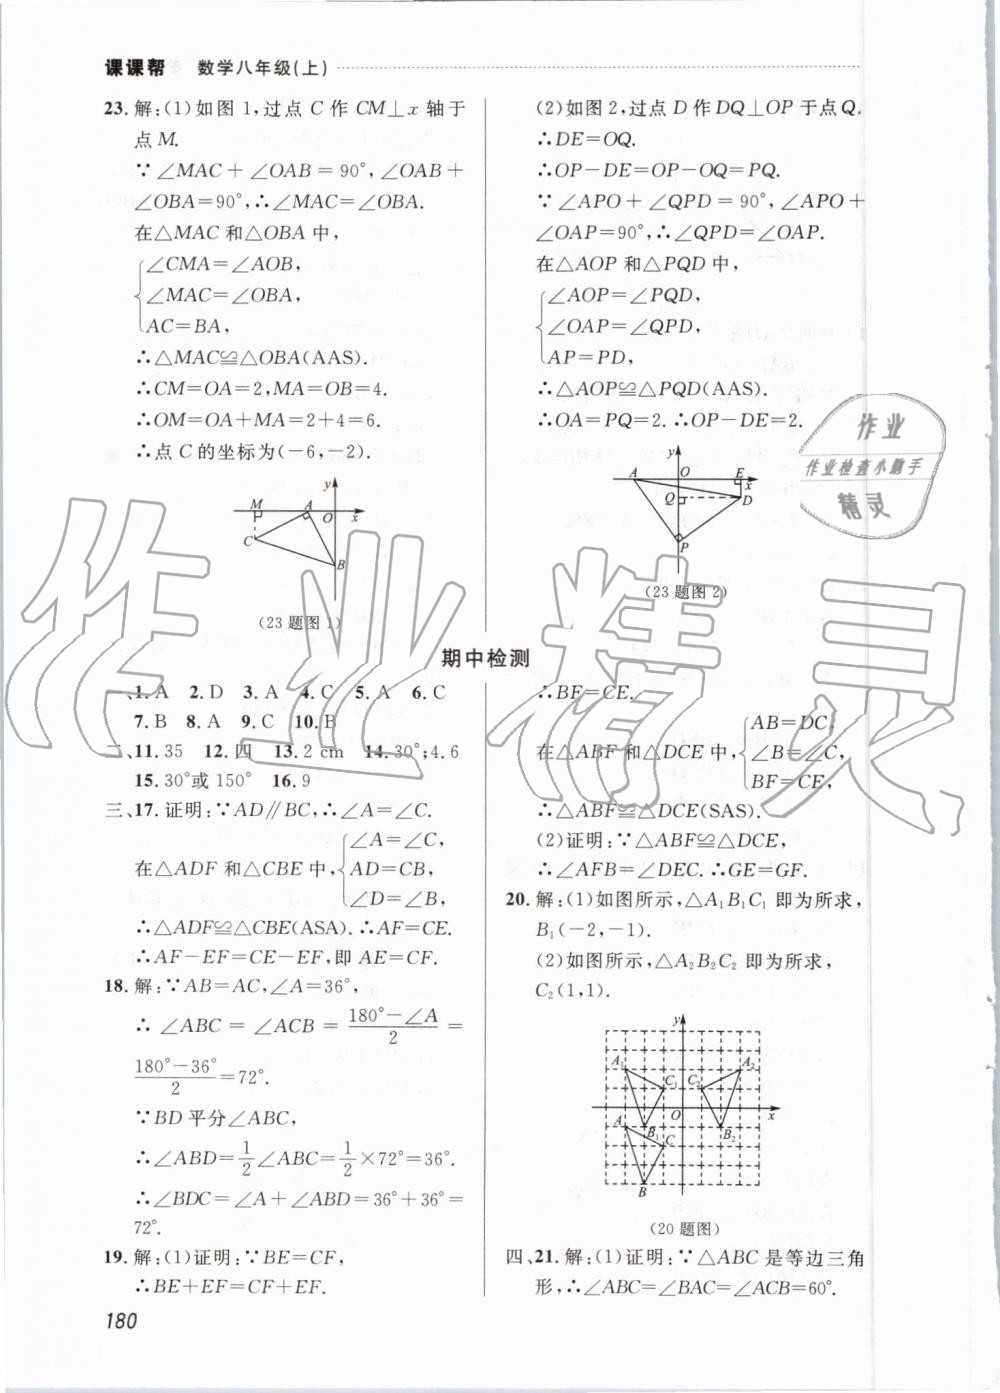 课课帮 数学八年级(上)
23.解:(1)如图1,过点C作CM⊥x轴于
点M.
∵∠MAC+∠OAB=90°,∠OAB+
∠OBA=90°,∴∠MAC=∠OBA.
在△MAC和△OBA中,
∠CMA=∠AOB,
∠MAC=∠OBA,
AC=BA,
∴△MAC≌△OBA(AAS).
∴CM=OA=2,MA=OB=4.
∴OM=OA+MA=2+4=6.
∴点C的坐标为(-6,-2).
y
M A O x
C
B
(23题图1)
(2)如图2,过点D作DQ⊥OP于点Q.
∴DE=OQ.
∴OP-DE=OP-OQ=PQ.
∵∠APO+∠QPD=90°,∠APO+
∠OAP=90°,∴∠QPD=∠OAP.
在△AOP和△PQD中,
∠AOP=∠PQD,
∠OAP=∠QPD,
AP=PD,
∴△AOP≌△PQD(AAS).
∴OA=PQ=2.∴OP-DE=2.
y
A O E x
Q D
P
(23题图2)
作业
作业检查小助手
精灵
期中检测
一、1.A 2.D 3.A 4.C 5.A 6.C
7.B 8.A 9.C 10.B
二、11.35 12.四 13.2 cm 14.30°;4.6
15.30°或150° 16.9
三、17.证明:∵AD∥BC,∴∠A=∠C.
∠A=∠C,
在△ADF和△CBE中, AD=CB,
∠D=∠B,
∴△ADF≌△CBE(ASA).∴AF=CE.
∴AF-EF=CE-EF,即AE=CF.
18.解:∵AB=AC,∠A=36°,
∴∠ABC=∠ACB=(180°-∠A)/2=
(180°-36°)/2=72°.
∵BD平分∠ABC,
∴∠ABD=1/2∠ABC=1/2×72°=36°.
∴∠BDC=∠A+∠ABD=36°+36°=
72°.
19.解:(1)证明:∵BE=CF,
∴BE+EF=CF+EF.
∴BF=CE.
AB=DC,
在△ABF和△DCE中, ∠B=∠C,
BF=CE,
∴△ABF≌△DCE(SAS).
(2)证明:∵△ABF≌△DCE,
∴∠AFB=∠DEC.∴GE=GF.
20.解:(1)如图所示,△A₁B₁C₁即为所求,
B₁(-2,-1).
(2)如图所示,△A₂B₂C₂即为所求,
C₂(1,1).
y
A₁ A₂
C₁ C₂
O x
A B₁ B₂
C
B
(20题图)
四、21.解:(1)证明:∵△ABC是等边三角
形,∴∠ABC=∠BAC=∠ACB=60°.
180
作业精灵